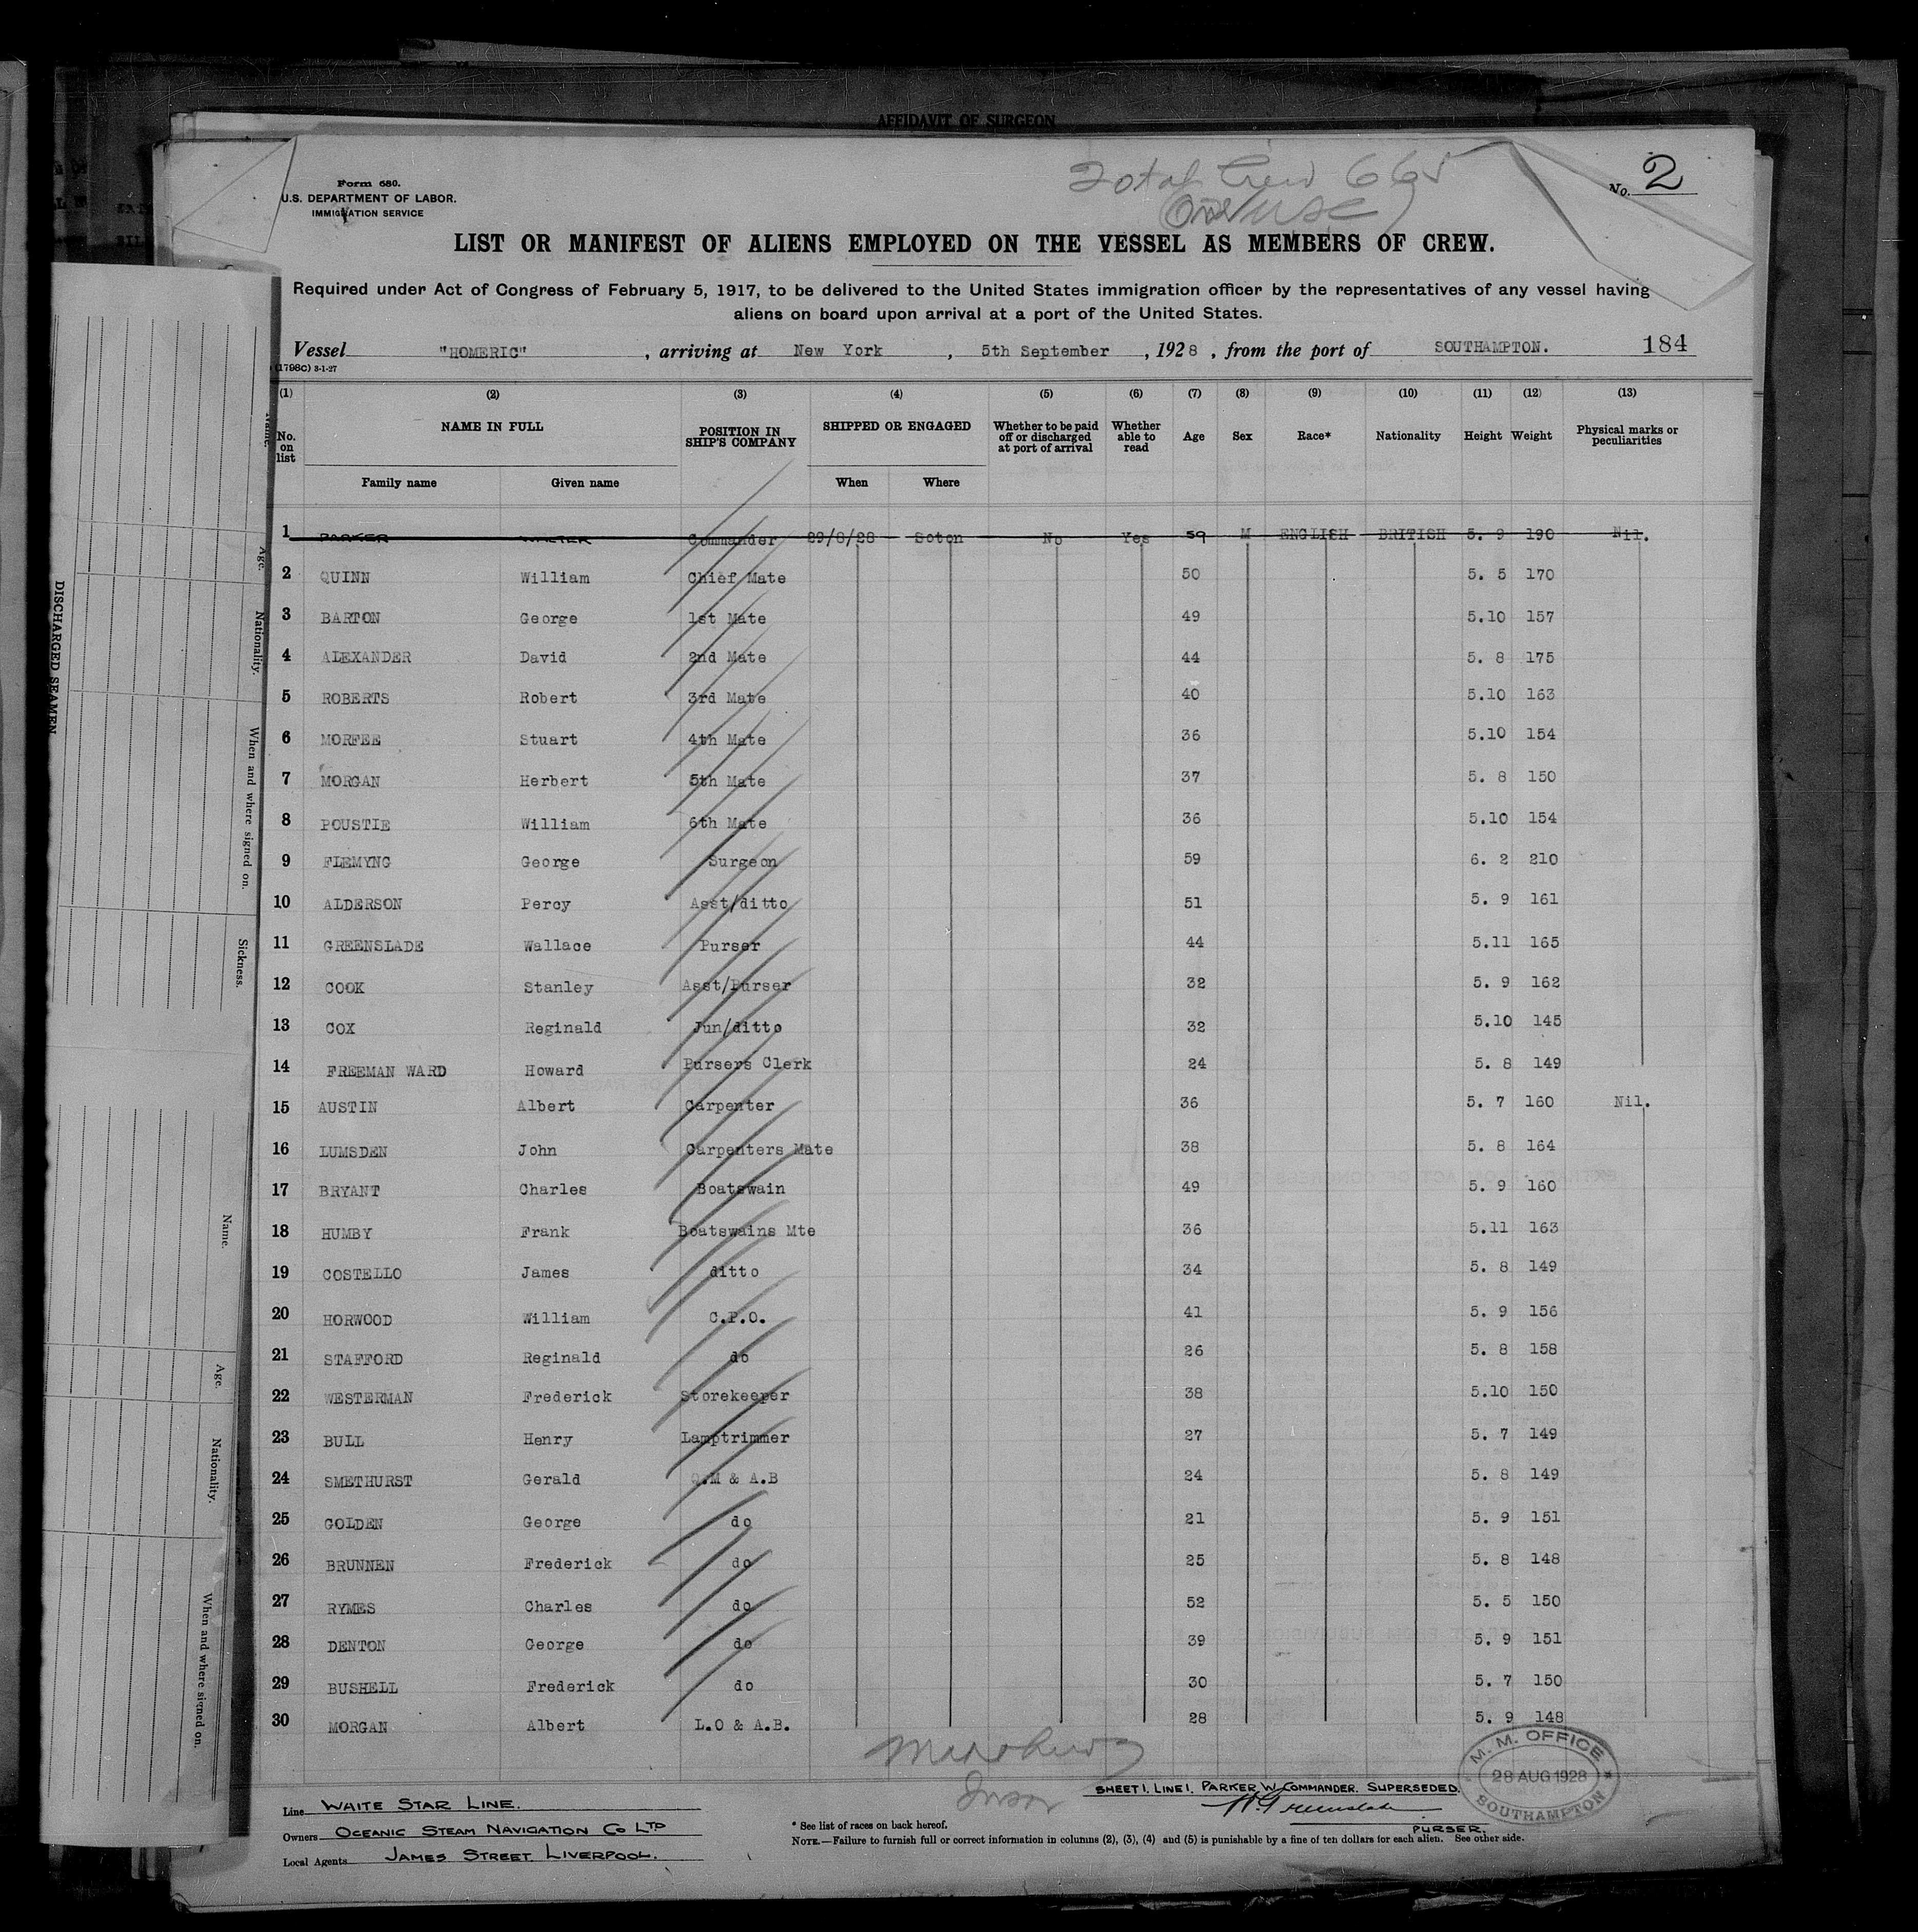 AFFIDAVIT OF SURGEON
Total Crew 665
One USC
No. 2
Form 680.
U.S. DEPARTMENT OF LABOR.
IMMIGRATION SERVICE
LIST OR MANIFEST OF ALIENS EMPLOYED ON THE VESSEL AS MEMBERS OF CREW.
Required under Act of Congress of February 5, 1917, to be delivered to the United States immigration officer by the representatives of any vessel having
aliens on board upon arrival at a port of the United States.
Vessel "HOMERIC", arriving at New York, 5th September, 1928, from the port of SOUTHAMPTON. 184
(1798C) 3-1-27
(1) (2) (3) (4) (5) (6) (7) (8) (9) (10) (11) (12) (13)
No. on list NAME IN FULL POSITION IN SHIP'S COMPANY SHIPPED OR ENGAGED Whether to be paid off or discharged at port of arrival Whether able to read Age Sex Race* Nationality Height Weight Physical marks or peculiarities
Family name Given name When Where
1 PARKER WALTER Commander 29/8/28 Soton No Yes 59 M ENGLISH BRITISH 5. 9 190 Nil.
2 QUINN William Chief Mate 50 5. 5 170
3 BARTON George 1st Mate 49 5.10 157
4 ALEXANDER David 2nd Mate 44 5. 8 175
5 ROBERTS Robert 3rd Mate 40 5.10 163
6 MORFEE Stuart 4th Mate 36 5.10 154
7 MORGAN Herbert 5th Mate 37 5. 8 150
8 POUSTIE William 6th Mate 36 5.10 154
9 FLEMYNG George Surgeon 59 6. 2 210
10 ALDERSON Percy Asst/ditto 51 5. 9 161
11 GREENSLADE Wallace Purser 44 5.11 165
12 COOK Stanley Asst/Purser 32 5. 9 162
13 COX Reginald Jun/ditto 32 5.10 145
14 FREEMAN WARD Howard Pursers Clerk 24 5. 8 149
15 AUSTIN Albert Carpenter 36 5. 7 160 Nil.
16 LUMSDEN John Carpenters Mate 38 5. 8 164
17 BRYANT Charles Boatswain 49 5. 9 160
18 HUMBY Frank Boatswains Mte 36 5.11 163
19 COSTELLO James ditto 34 5. 8 149
20 HORWOOD William C.P.O. 41 5. 9 156
21 STAFFORD Reginald do 26 5. 8 158
22 WESTERMAN Frederick Storekeeper 38 5.10 150
23 BULL Henry Lamptrimmer 27 5. 7 149
24 SMETHURST Gerald Q.M & A.B 24 5. 8 149
25 GOLDEN George do 21 5. 9 151
26 BRUNNEN Frederick do 25 5. 8 148
27 RYMES Charles do 52 5. 5 150
28 DENTON George do 39 5. 9 151
29 BUSHELL Frederick do 30 5. 7 150
30 MORGAN Albert L.O & A.B. 28 5. 9 148
M. M. OFFICE
28 AUG 1928
SOUTHAMPTON
SHEET 1. LINE 1. PARKER W. COMMANDER. SUPERSEDED.
W. Greenslade
PURSER.
Line WHITE STAR LINE.
Owners OCEANIC STEAM NAVIGATION CO LTD
Local Agents JAMES STREET. LIVERPOOL.
* See list of races on back hereof.
NOTE.—Failure to furnish full or correct information in columns (2), (3), (4) and (5) is punishable by a fine of ten dollars for each alien. See other side.
DISCHARGED SEAMEN
Name.
Age.
Nationality.
When and where signed on.
Sickness.
Name.
Age.
Nationality.
When and where signed on.